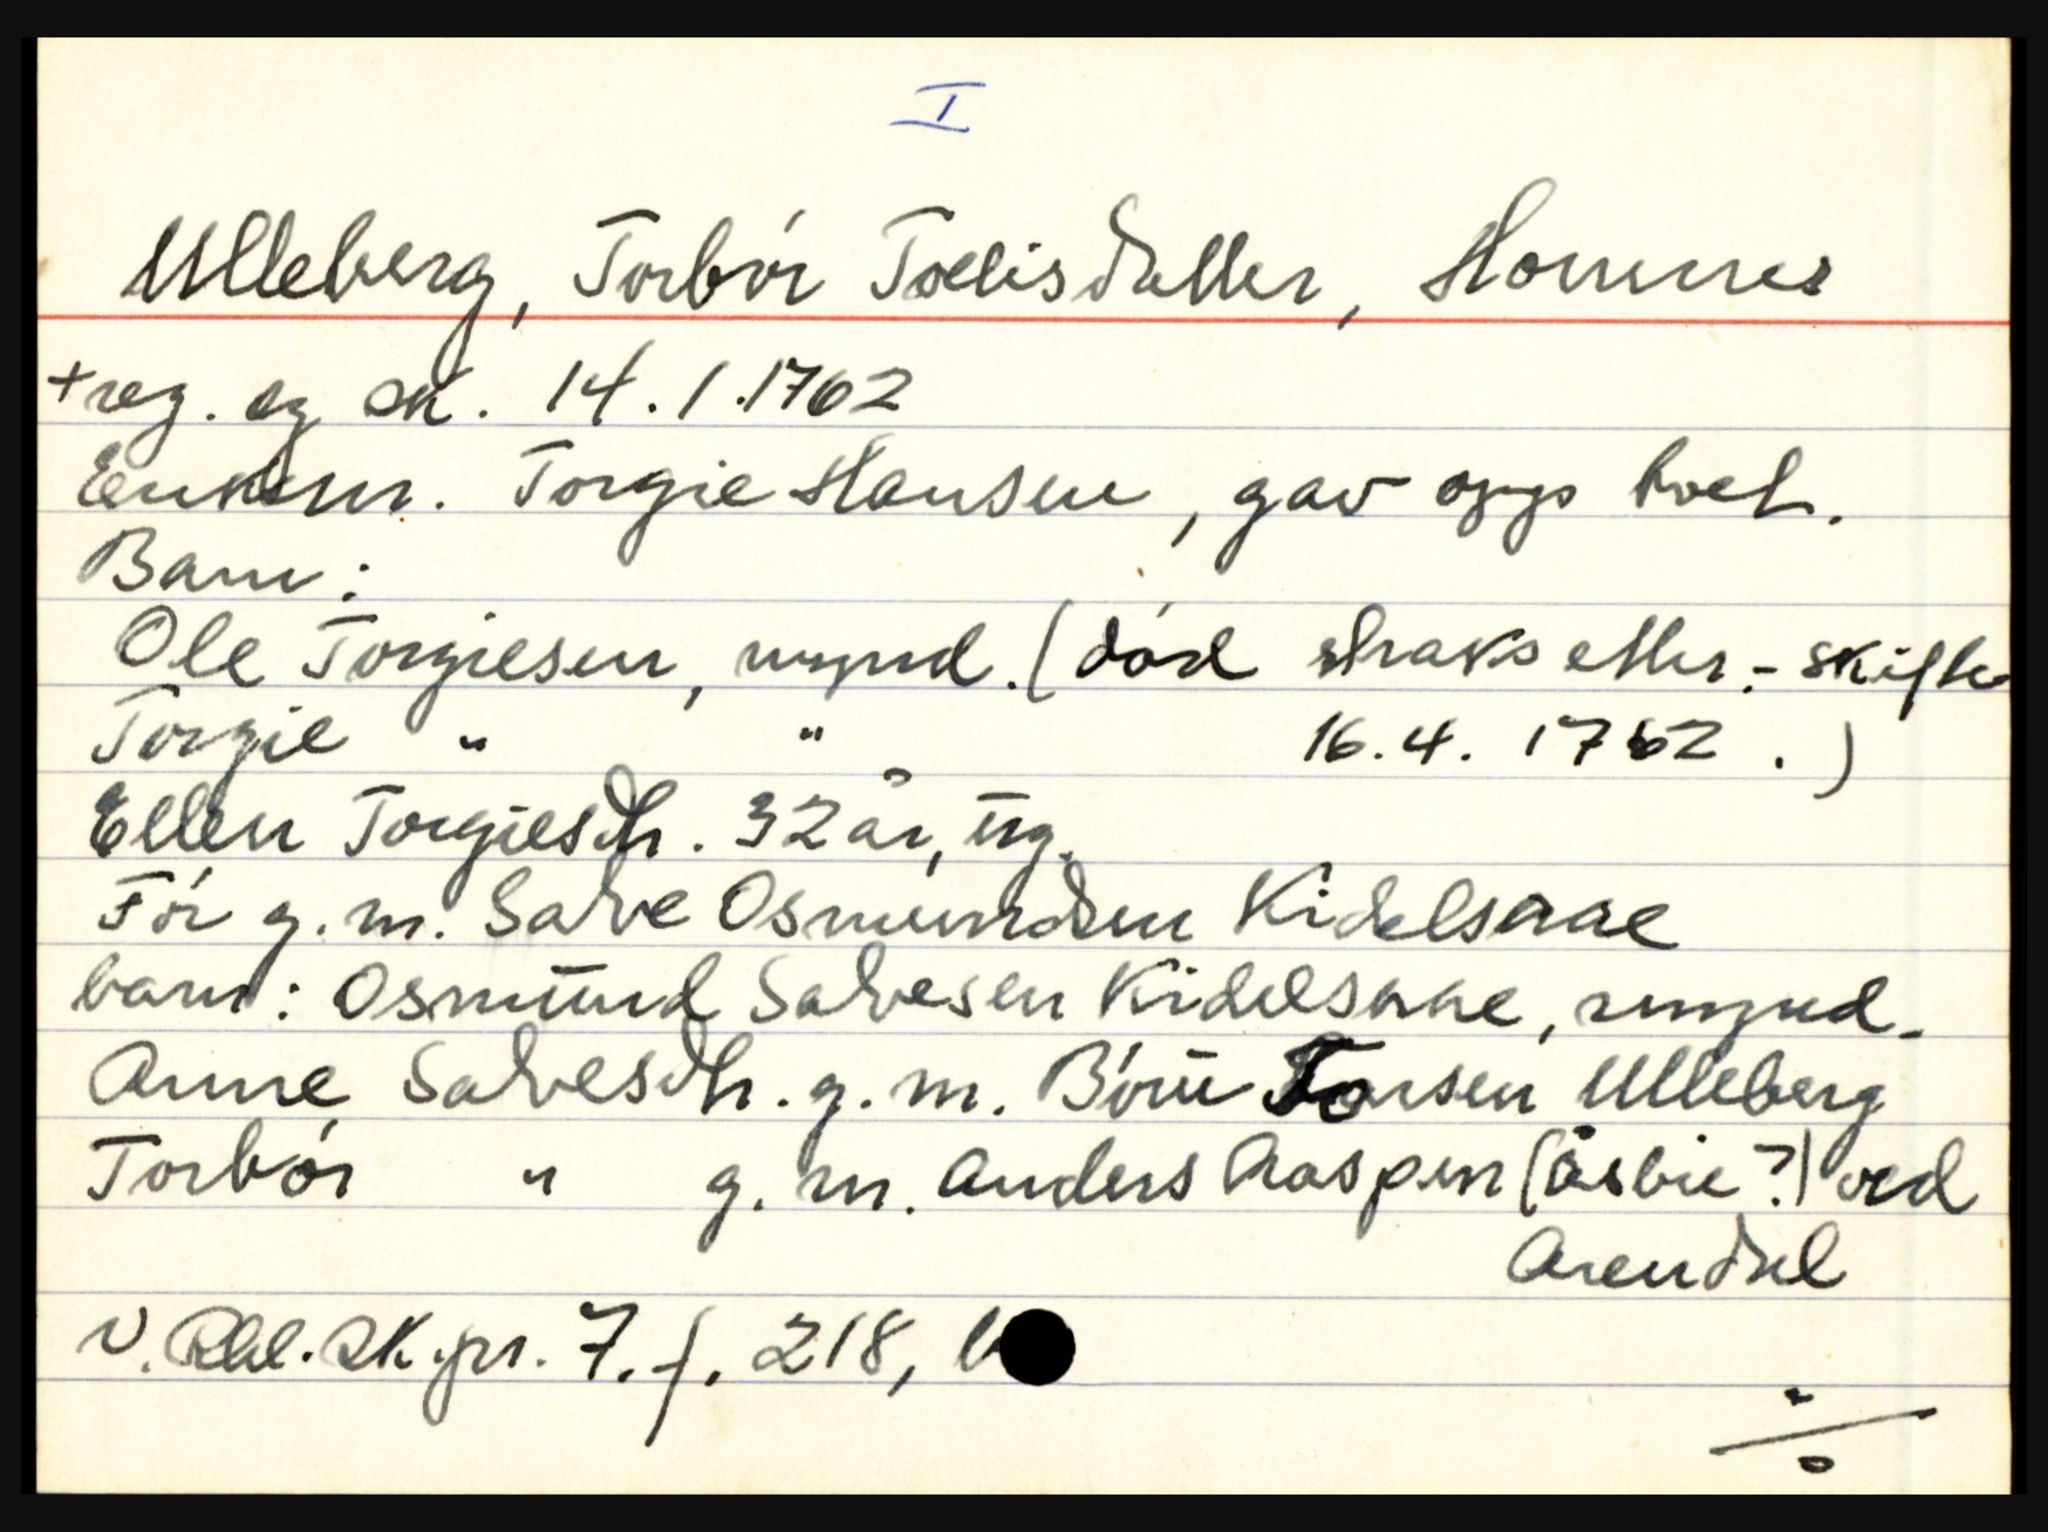 I
Ulleberg, Torbór Toelisdatter, Homnes
+ reg. og sk. 14.1.1762
Enkem. Torgie Hansen, gav opp boet.
Barn:
Ole Torgiesen, mynd. (død straks etter. - skifte
Torgie " " 16.4. 1762.)
Ellen Torgiesdtr. 32 år, ug.
Før g.m. Salve Osmundsen Kidelsaae
barn: Osmund Salvesen Kidelsaae, mynd.
Anne Salvesdtr. g.m. Børu Torsen Ulleberg
Torbór " g.m. Anders Aaspen (åsbie?) ved
Arendal
V. Rbl. sk.pr. 7. f. 218, b